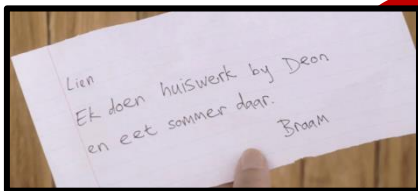 Lien
Ek doen huiswerk by Deon
en eet sommer daar.
Braam